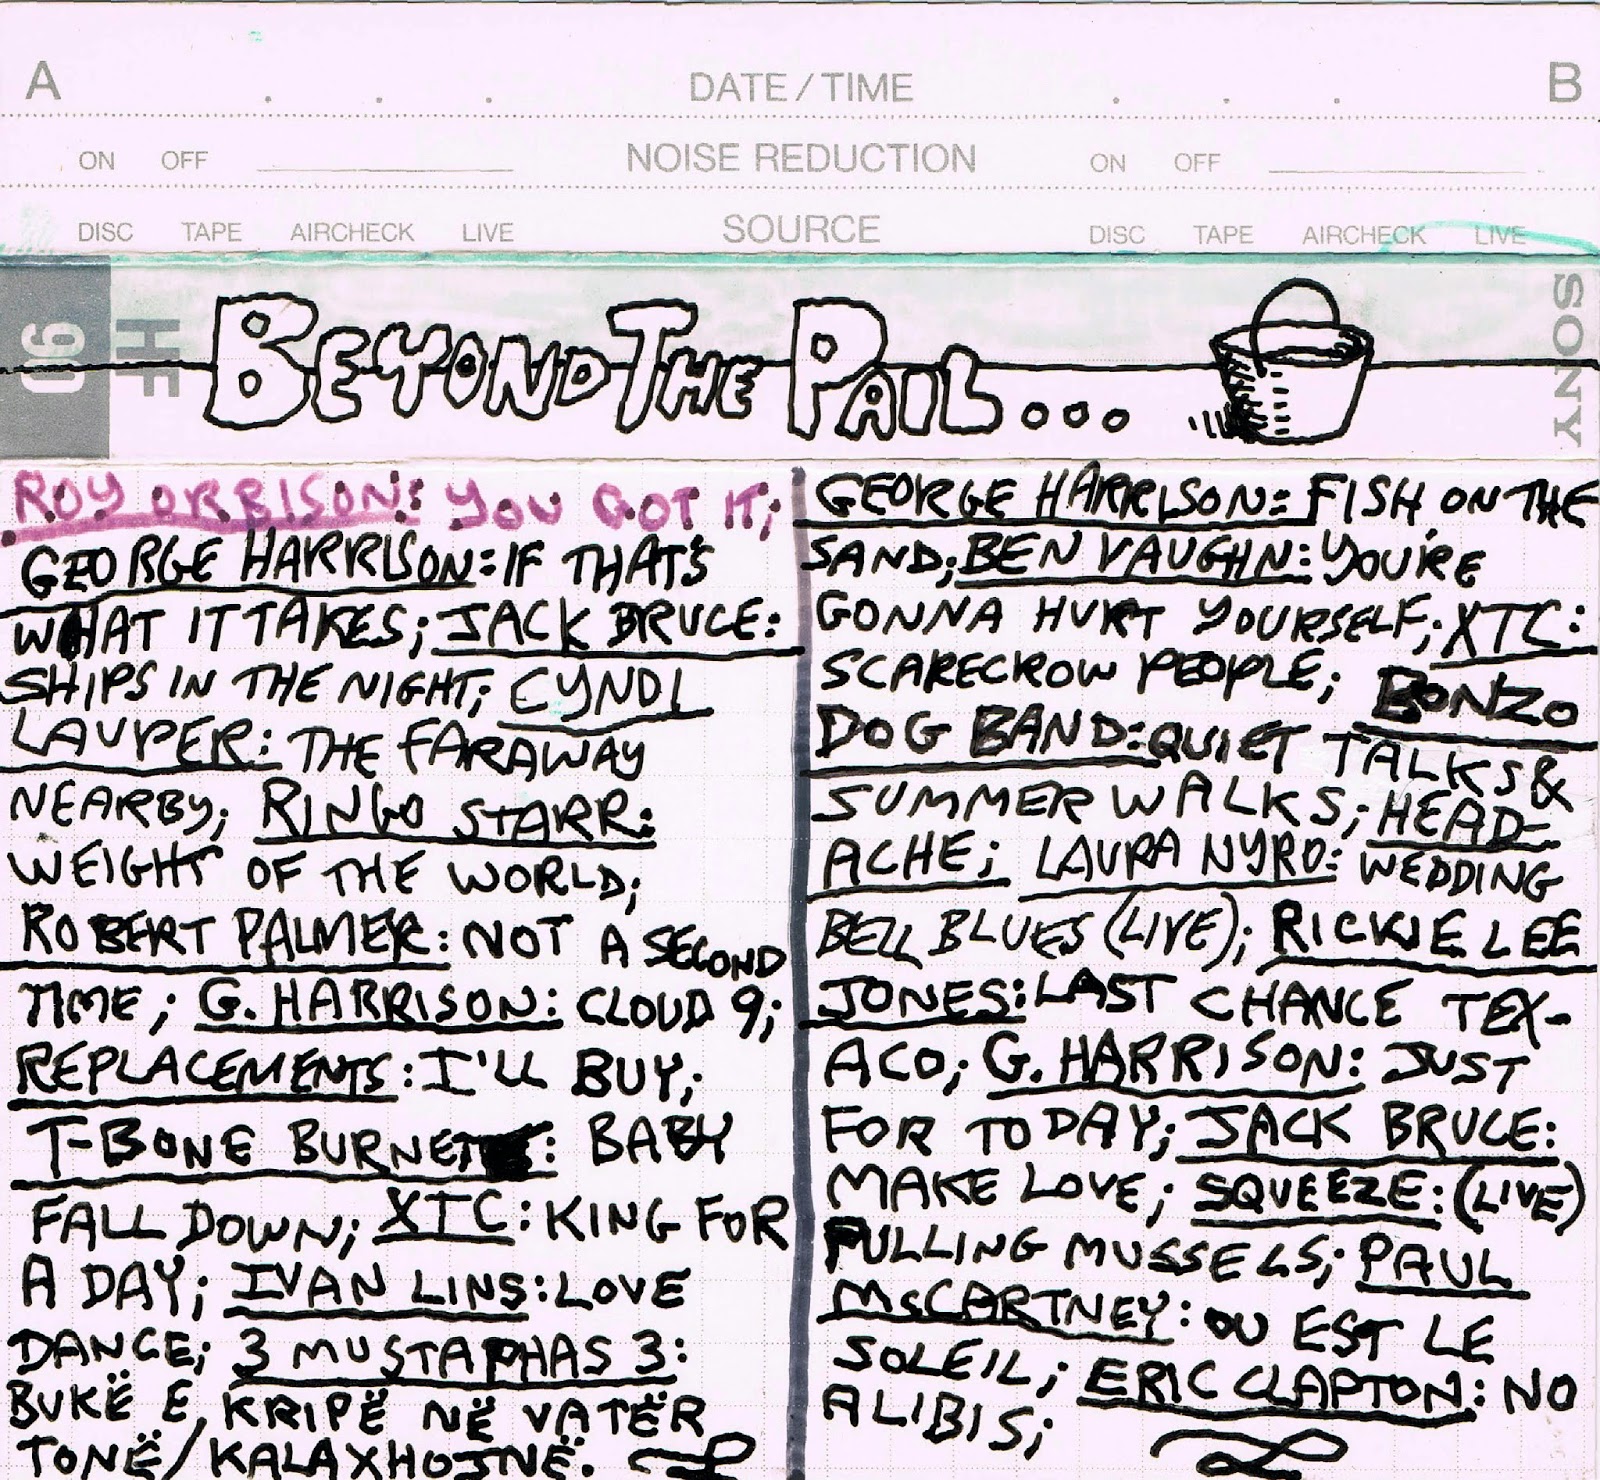 A . . . DATE / TIME . . . B
ON OFF NOISE REDUCTION ON OFF
DISC TAPE AIRCHECK LIVE SOURCE DISC TAPE AIRCHECK LIVE
HF 90
BEYOND THE PAIL...
SONY
ROY ORBISON: YOU GOT IT;
GEORGE HARRISON: IF THAT'S
WHAT IT TAKES; JACK BRUCE:
SHIPS IN THE NIGHT; CYNDI
LAUPER: THE FARAWAY
NEARBY; RINGO STARR:
WEIGHT OF THE WORLD;
ROBERT PALMER: NOT A SECOND
TIME; G. HARRISON: CLOUD 9;
REPLACEMENTS: I'LL BUY;
T-BONE BURNETT: BABY
FALL DOWN; XTC: KING FOR
A DAY; IVAN LINS: LOVE
DANCE; 3 MUSTAPHAS 3:
BUKË E KRIPË NË VATËR
TONË/KALAXHOJNË.
GEORGE HARRISON: FISH ON THE
SAND; BEN VAUGHN: YOU'RE
GONNA HURT YOURSELF; XTC:
SCARECROW PEOPLE; BONZO
DOG BAND: QUIET TALKS &
SUMMER WALKS; HEAD-
ACHE; LAURA NYRO: WEDDING
BELL BLUES (LIVE); RICKIE LEE
JONES: LAST CHANCE TEX-
ACO; G. HARRISON: JUST
FOR TODAY; JACK BRUCE:
MAKE LOVE; SQUEEZE: (LIVE)
PULLING MUSSELS; PAUL
McCARTNEY: OU EST LE
SOLEIL; ERIC CLAPTON: NO
ALIBIS;